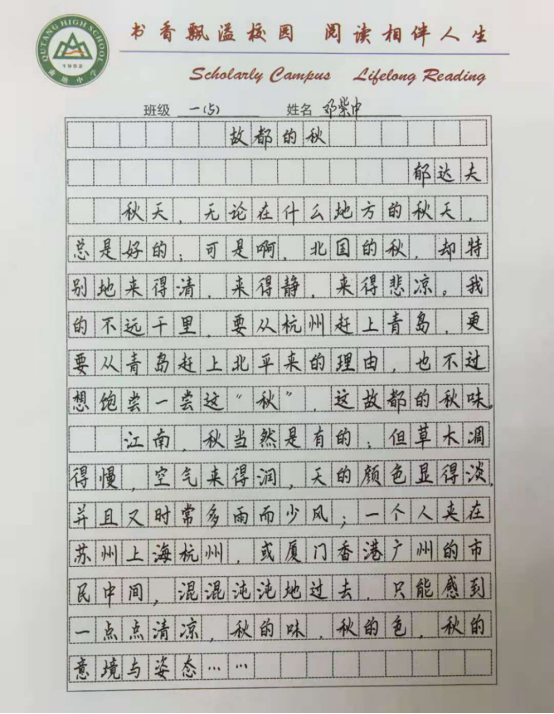 QUTANG HIGH SCHOOL
书香飘溢校园 阅读相伴人生
Scholarly Campus Lifelong Reading
班级 一(5) 姓名 邓紫中
故都的秋
郁达夫
秋天,无论在什么地方的秋天,
总是好的;可是啊,北国的秋,却特
别地来得清,来得静,来得悲凉。我
的不远千里,要从杭州赶上青岛,更
要从青岛赶上北平来的理由,也不过
想饱尝一尝这“秋”,这故都的秋味。
江南,秋当然是有的;但草木凋
得慢,空气来得润,天的颜色显得淡,
并且又时常多雨而少风;一个人夹在
苏州上海杭州,或厦门香港广州的市
民中间,混混沌沌地过去,只能感到
一点点清凉,秋的味,秋的色,秋的
意境与姿态……